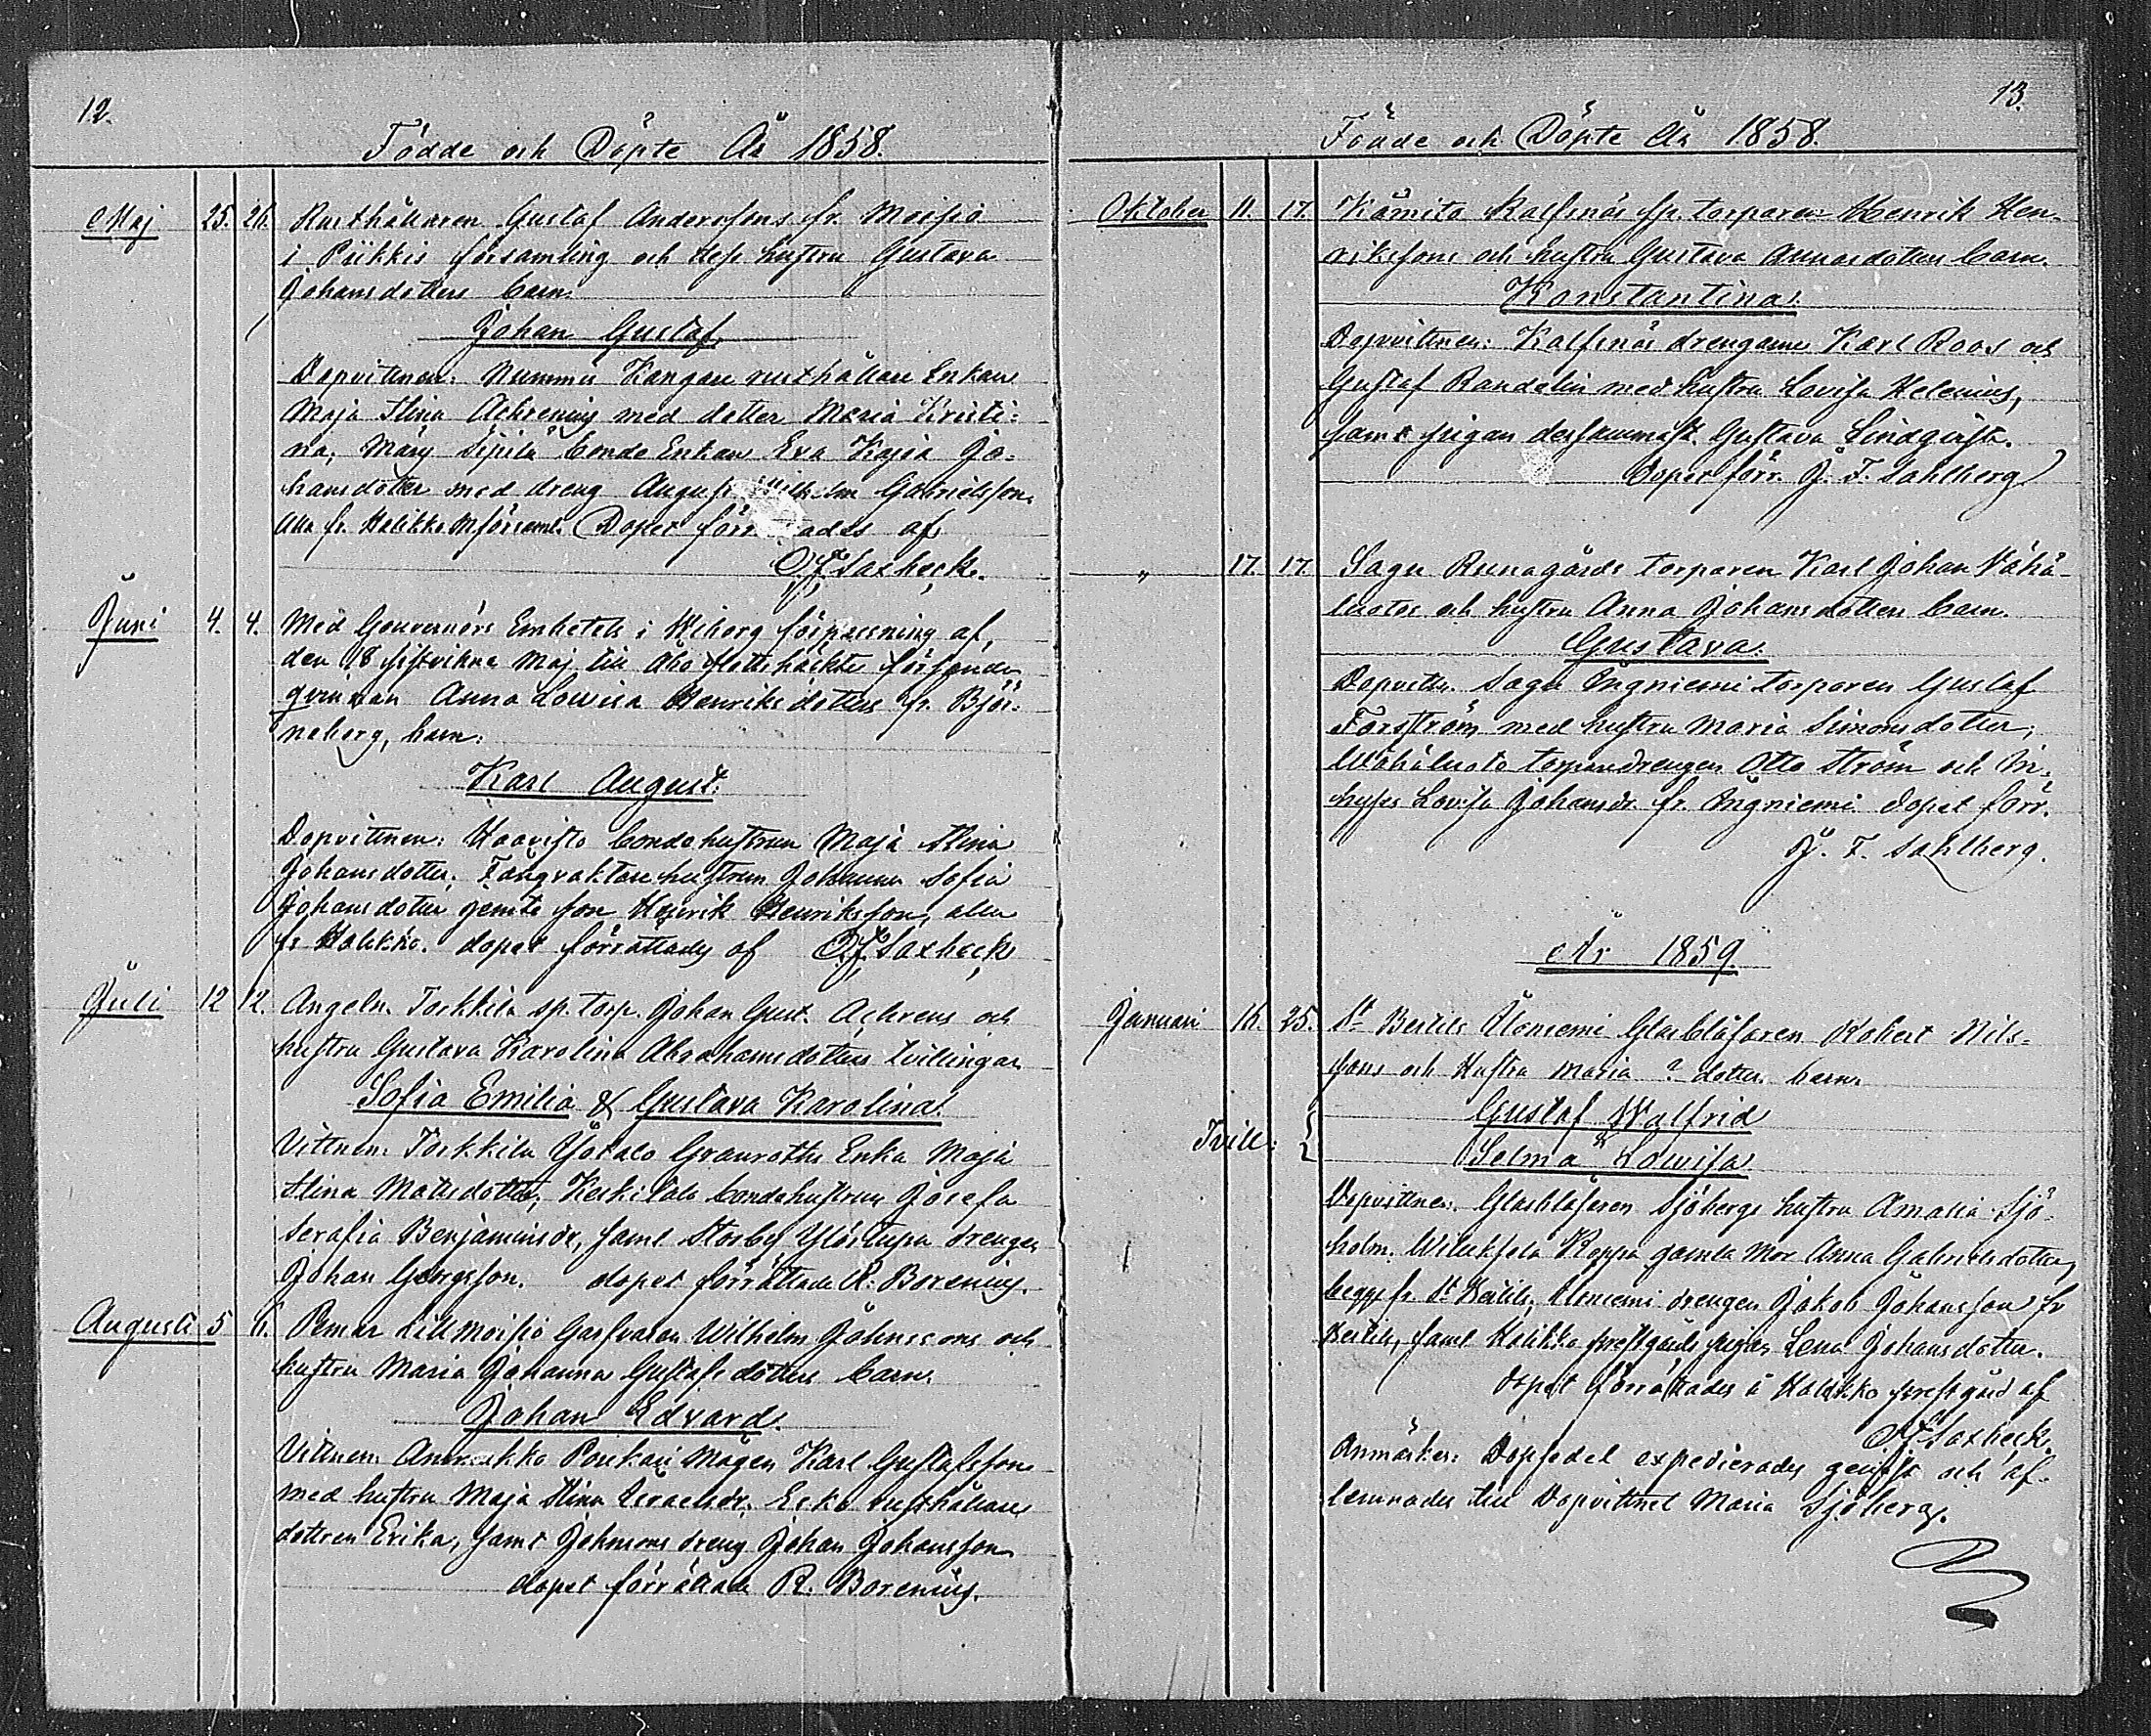 12.
Födde och Döpte År 1858.
Maj 25. 26. Rusthållaren Gustaf Anderssons fr. Moisio
i Piikkis församling och dess hustru Gustava
Johansdotters barn.
Johan Gustaf.
Dopvittnen: Nummis Kangare rusthållare Enkan
Maja Stina Achrenius med dotter Maria Kristi-
na, Märy Sipilä bonde Enkan Eva Kajsa Jo-
hansdotter med dreng August Wilhelm Gabrielsson.
alla fr. Halikko Mförsaml. Dopet förrättades af
Saxbeck.
Juni 4. 4. Med Gouvernörs Embetets i Wiborg förpassning af
den 18 sistvikne Maj till Åbo slottshäkte försände
qvinnan Anna Lovisa Henriksdotters fr. Björ-
neborg, barn:
Karl August.
Dopvittnen: Haavisto bondehustrun Maja Stina
Johansdotter, Fångvaktare hustrun Johanna Sofia
Johansdotter jemte son Henrik Henriksson, alla
fr Halikko. dopet förrättades af Saxbeck
Juli 12 12. Angeln. Torkkila sp. torp. Johan Gust. Achrens och
hustru Gustava Karolina Abrahamsdotters tvillingar
Sofia Emilia & Gustava Karolina.
Vittnen: Torkkila Ylötalo Granroths Enka Maja
Stina Mattsdotter, Keskitalo bondehustrun Josefa
Serafia Benjaminsdr, samt Storby Ylöstupa drengen
Johan Georgsson. dopet förrättade R. Borenius.
Augusti 5 6. Pemar Lillmoisio Garfvaren Wilhelm Johnssons och
hustru Maria Johanna Gustafsdotters barn.
Johan Edvard.
Vittnen: Mågen Karl Gustafsson
med hustru Maja Stina Israelsdr. rusthållare
dottren Erika, samt Johnsons dreng Johan Johansson
dopet förrättade R. Borenius.
13.
Födde och Döpte År 1858.
Oktober 11. 17. Kömito Kalfsnäs sp. torparen Henrik Hen-
rikssons och hustru Gustava Annasdotters barn.
Konstantina.
Dopvittnen: Kalfsnäs drengarne Karl Roos och
Gustaf Randelin med hustru Lovisa Helenius,
samt pigan dersammast. Gustava Lindqvist.
Dopet förr. J. F. Sahlberg
" 17. 17. Sagu Runagårds torparen Karl Johan Vähä-
luotos och hustru Anna Johansdotters barn.
Gustava.
Dopvittn. Sagu Ångniemi torparen Gustaf
Forsström med hustru Maria Simonsdotter,
Wähäluoto torpardrengen Otto Ström och In-
hyses Lovisa Johansdr. fr. Ångniemi dopet förr.
J. F. Sahlberg.
År 1859.
Januari 16. 25. St Bertils Åloniemi Glasblåsaren Robert Nils-
sons och Hustru Maria ? dotter barn
Tvill: { Gustaf Walfrid
&
Selma Lowisa
Dopvittnen: Glasblåseren Sjöbergs hustru Amalia Sjö-
holm. Wiluksela Koppa gamla Mor Anna Gabrielsdotter,
begge fr. St Bertils, Åloniemi drengen Jakob Johansson fr
Bertils, samt Halikko prestgårds pigan Lena Johansdotter.
Dopet förrättades å Halikko prestgård af
Saxbeck.
Anmärkn: Dopsedel expedierades genast och af-
lemnades till Dopvittnet Maria Sjöberg.